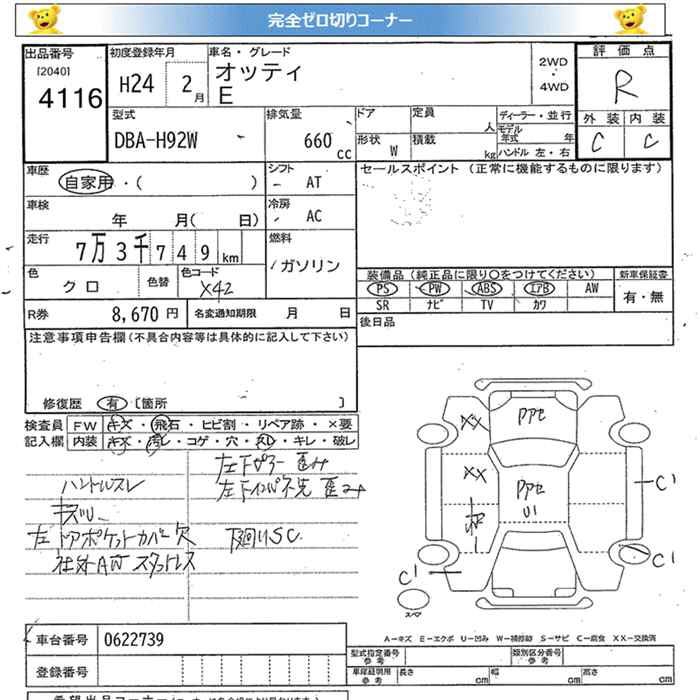 完全ゼロ切りコーナー
出品番号 初度登録年月 車名・グレード 評価点
[2040] オッティ 2WD
4116 H24 2月 E 4WD R
型式 排気量 ドア 定員 ディーラー・並行 外装 内装
DBA-H92W 660 cc 人 モデル年式 年 C C
形状 W 積載 kg ハンドル 左・右
車歴 シフト セールスポイント (正常に機能するものに限ります)
自家用・( ) AT
車検 冷房
年 月( 日) AC
走行 燃料
7万3千749km ガソリン
装備品 (純正品に限り○をつけてください) 新車保証書
色 色替 色コード PS PW ABS エアB AW 有・無
クロ X42 SR ナビ TV カワ
R券 8,670円 名変通知期限 月 日 後日品
注意事項申告欄(不具合内容等は具体的に記入して下さい)
修復歴 有 [箇所 ]
検査員 FW キズ・飛石・ヒビ割・リペア跡・×要
記入欄 内装 キズ・汚レ・コゲ・穴・スレ・キレ・破レ
左下ピラー 歪み
ハンドルスレ
左ドアポケットカバー欠 下廻りSC
社外AW スタットレス
PPセ
XX
XX
PPセ
U1
C'
C'
C'
スペア
A-キズ E-エクボ U-凹み W-補修跡 S-サビ C-腐食 XX-交換済
車台番号 0622739
型式指定番号 参考 類別区分番号 参考
登録番号
車庫証明用 参考 長さ cm 幅 cm 高さ cm